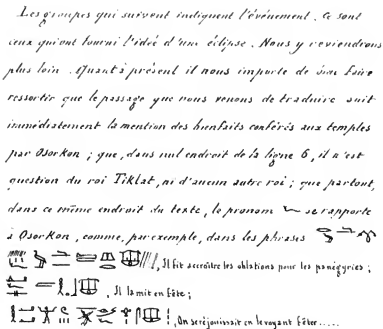 Les groupes qui suivent indiquent l'événement. Ce sont
ceux qui ont fourni l'idée d'une éclipse. Nous y reviendrons
plus loin. Quant à présent il nous importe de faire
ressortir que le passage que nous venons de traduire suit
immédiatement la mention des bienfaits conférés aux temples
par Osorkon ; que, dans nul endroit de la ligne 6, il n'est
question du roi Tiklat, ni d'aucun autre roi ; que partout,
dans ce même endroit du texte, le pronom se rapporte
à Osorkon, comme, par exemple, dans les phrases
, Il fit accroître les oblations pour les panégyries ;
, Il la mit en fête ;
, On se réjouissait en le voyant fêter.....